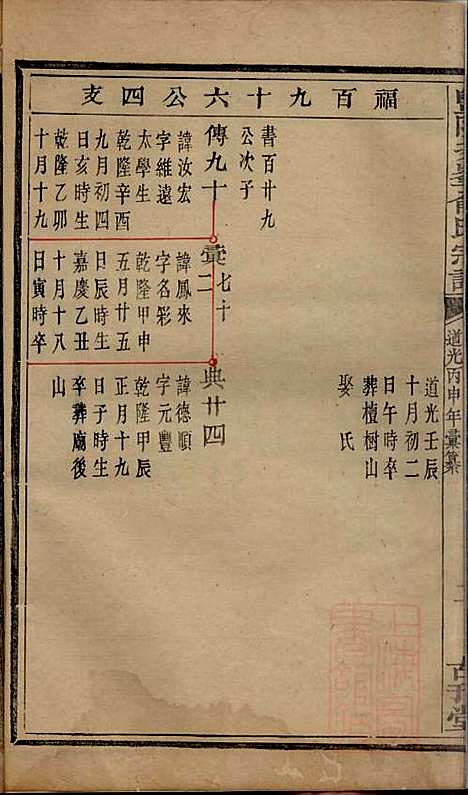 俞氏宗譜
道光丙申年彙纂
福百九十六公四支
書百廿九
公次子
傳九十
諱汝宏
字維遠
太學生
乾隆辛酉
九月初四
日亥時生
乾隆乙卯
十月十九
彙七十二
諱鳳來
字名彩
乾隆甲申
五月廿五
日辰時生
嘉慶乙丑
十月十八
日寅時卒
道光壬辰
十月初二
日午時卒
葬檀樹山
娶氏
典廿四
諱德順
字元豐
乾隆甲辰
正月十九
日子時生
卒葬廟後
山